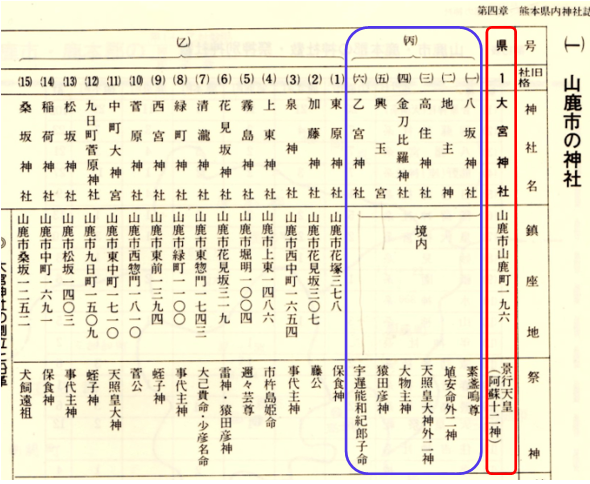 第四章 熊本県内神社誌
(一) 山鹿市の神社
号 旧社格 神社名 鎮座地 祭神
県 1 大宮神社 山鹿市山鹿町一九六 景行天皇(阿蘇十二神)
(丙)
境内
(一) 八坂神社 素盞嗚尊
(二) 地主神 埴安命外二神
(三) 高住神社 天照皇大神外二神
(四) 金刀比羅神社 大物主神
(五) 興玉宮 猿田彦神
(六) 乙宮神社 宇遅能和紀郎子命
(乙)
(1) 東原神社 山鹿市花塚三七八 保食神
(2) 加藤神社 山鹿市花見坂三〇七 藤公
(3) 泉神社 山鹿市西中町一六五四 事代主神
(4) 上東神社 山鹿市上東一四八六 市杵島姫命
(5) 霧島神社 山鹿市堀明一〇〇四 邇々芸尊
(6) 花見坂神社 山鹿市花見坂三一九 雷神・猿田彦神
(7) 清瀧神社 山鹿市東惣門一七四三 大己貴命・少彦名命
(8) 緑町神社 山鹿市緑町一〇〇 事代主神
(9) 西宮神社 山鹿市東前一三九四 蛭子神
(10) 菅原神社 山鹿市西惣門一八一〇 菅公
(11) 中町大神宮 山鹿市東中町一七一〇 天照皇大神
(12) 九日町菅原神社 山鹿市九日町一五〇九 蛭子神
(13) 松坂神社 山鹿市松坂一四〇三 事代主神
(14) 稲荷神社 山鹿市中町一六九一 保食神
(15) 桑坂神社 山鹿市桑坂一二五二 犬飼遠祖